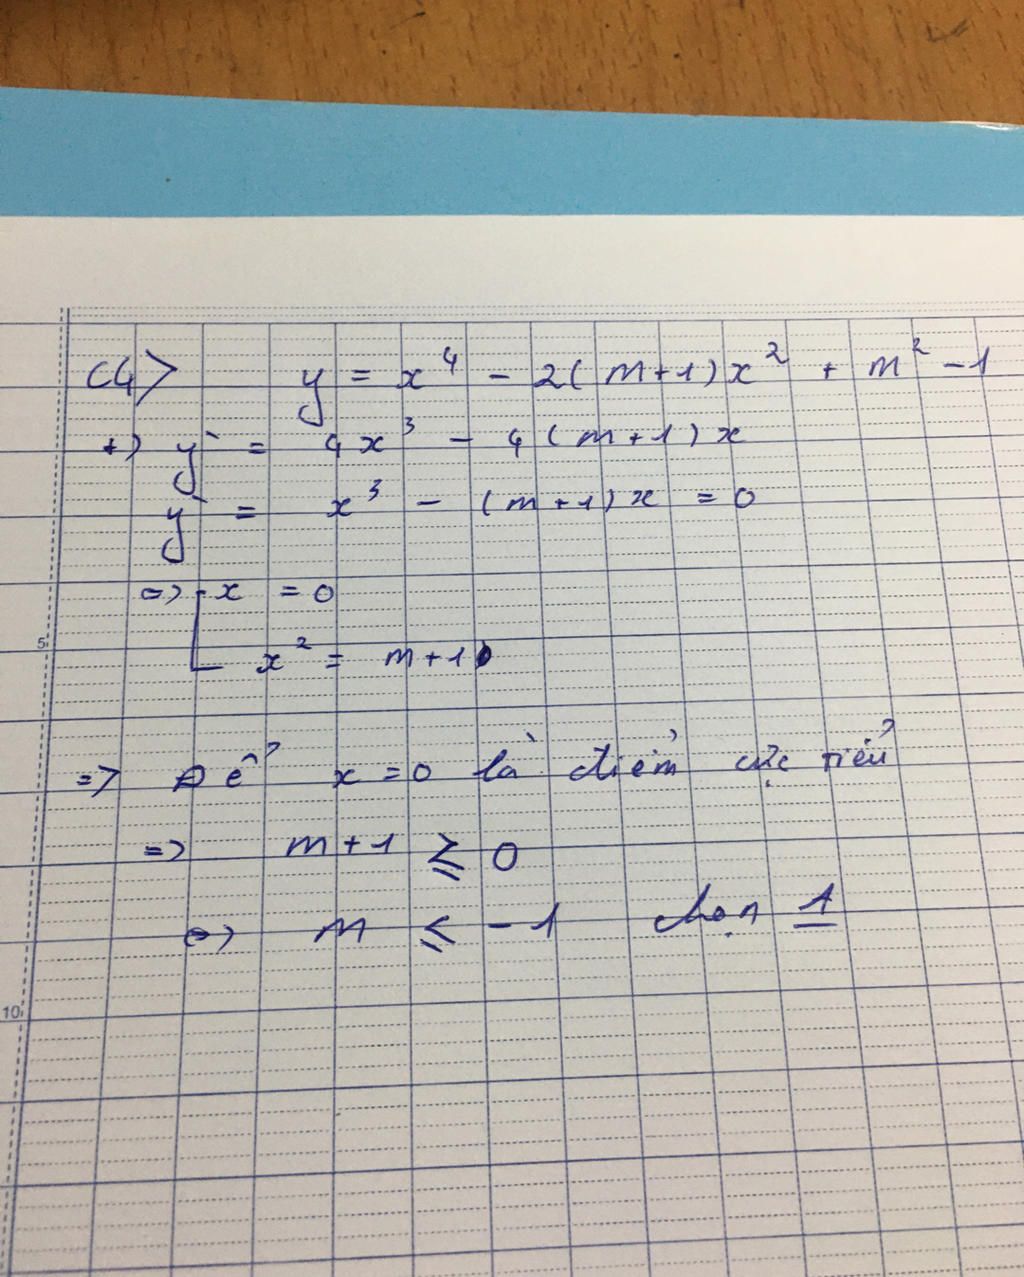 C4> y = x⁴ - 2(m+1)x² + m² - 1
+) y' = 4x³ - 4(m+1)x
y' = x³ - (m+1)x = 0
=> x = 0
5
x² = m+1
=> Để x = 0 là điểm cực tiểu
=> m+1 ≤ 0
<=> m ≤ -1 chọn 1
10